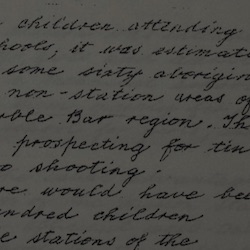 children attending
hools, it was estimat
some sixty aborigin
non-station areas o
rble Bar region. Th
prospecting for tin
o shooting.
re would have bee
undred children
e stations of the